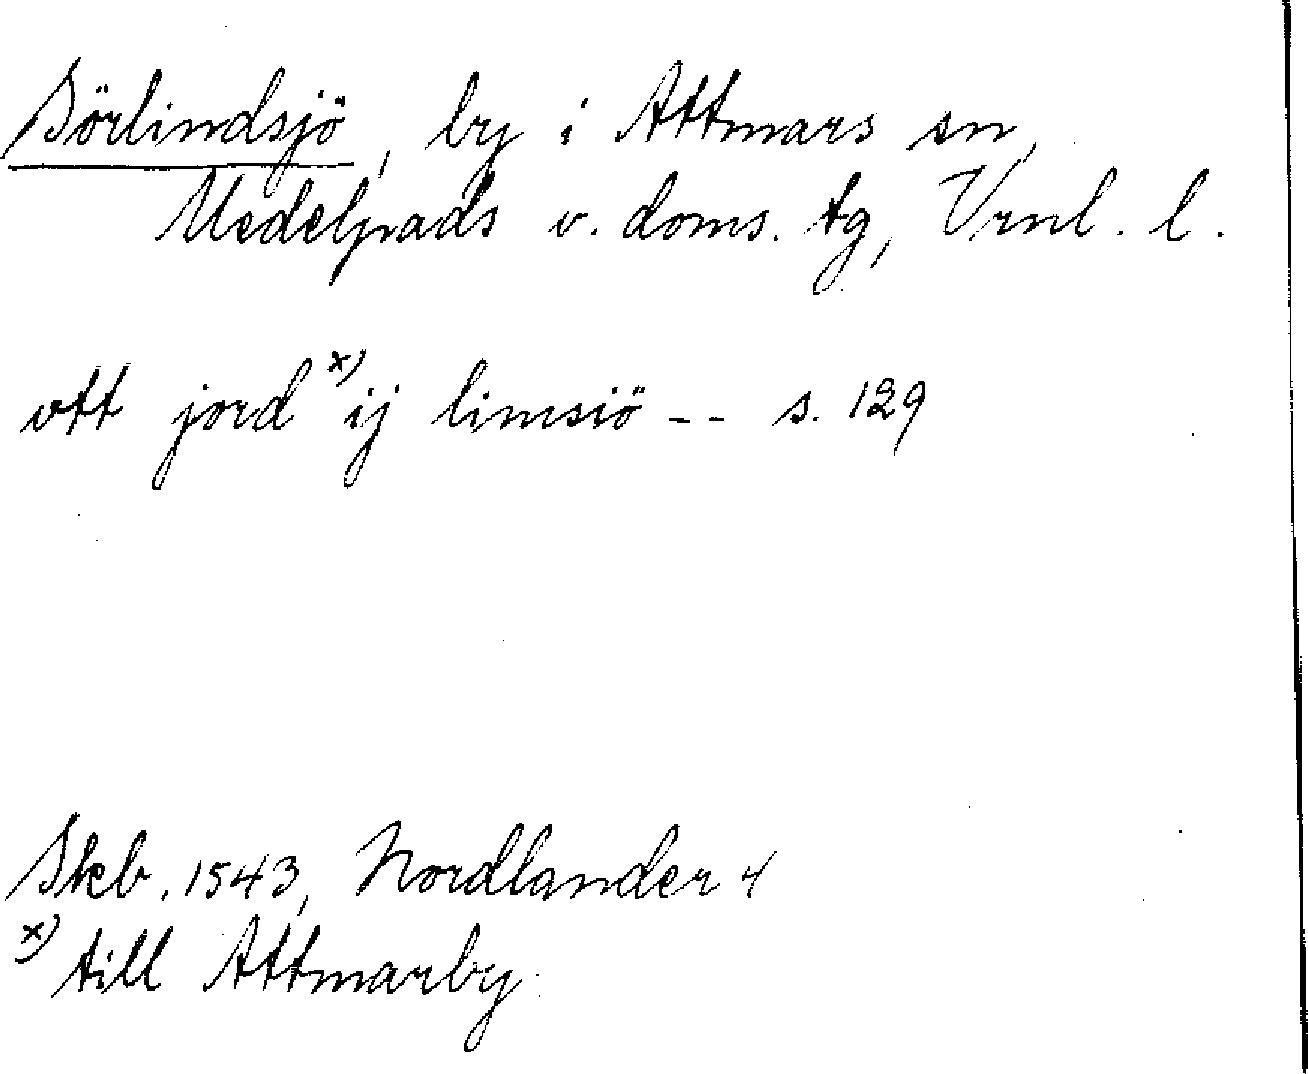 Sörlindsjö, by i Attmars sn,
Medelpads v. doms. tg, Vrnl. l.
vtt jord x) ij limsiö -- s. 129
Skb. 1543, Nordlander 4
x) till Attmarby.